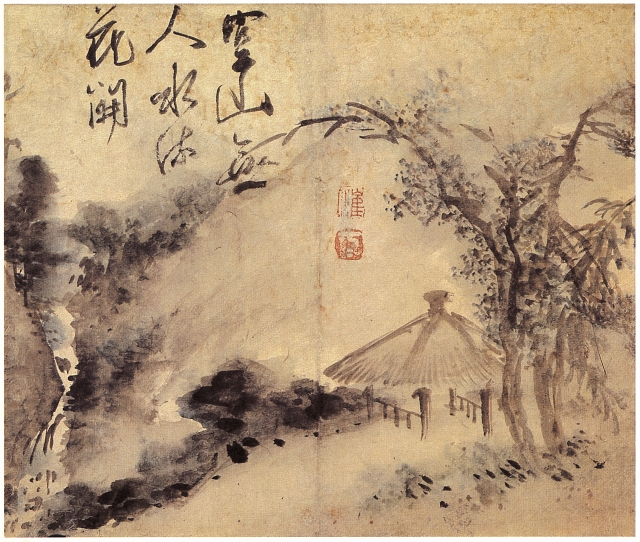 空山無
人水流
花開
崔
北